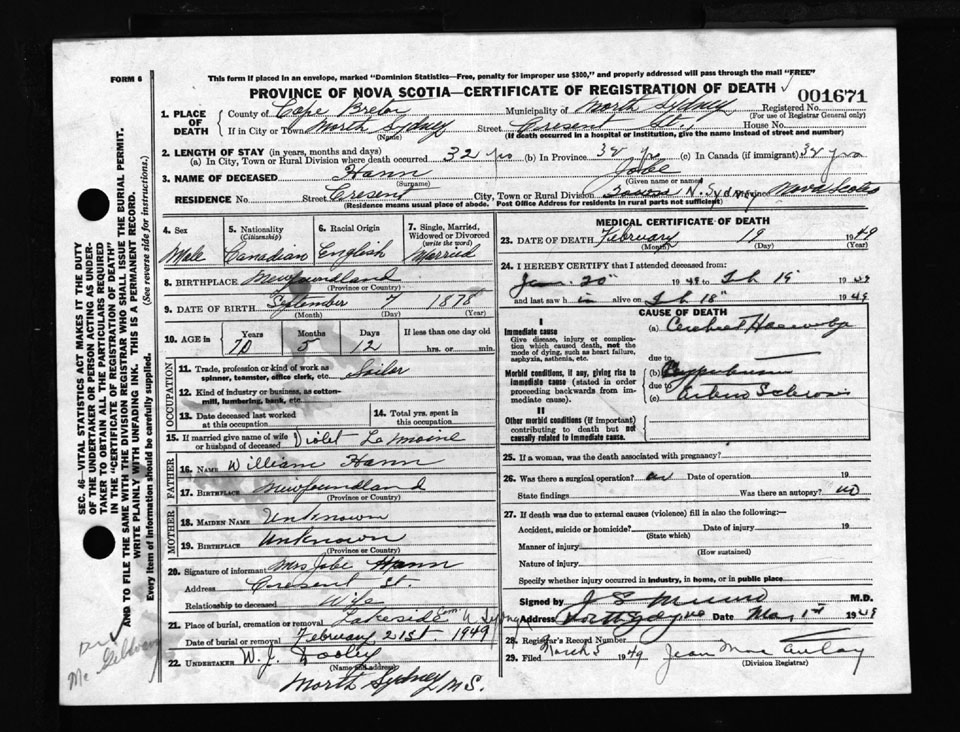 FORM 6
This form if placed in an envelope, marked "Dominion Statistics—Free, penalty for improper use $300," and properly addressed will pass through the mail "FREE"
PROVINCE OF NOVA SCOTIA—CERTIFICATE OF REGISTRATION OF DEATH
001671
1. PLACE OF DEATH
County of Cape Breton Municipality of North Sydney Registered No.
(For use of Registrar General only)
If in City or Town North Sydney Street Cresent St., House No.
(Name) (If death occurred in a hospital or institution, give the name instead of street and number)
2. LENGTH OF STAY (in years, months and days)
(a) In City, Town or Rural Division where death occurred 32 yrs (b) In Province 38 yrs (c) In Canada (if immigrant) 38 yrs
3. NAME OF DECEASED Hann Jobe
(Surname) (Given name or names)
RESIDENCE No. Street Cresent City, Town or Rural Division N. Sydney Province Nova Scotia
(Residence means usual place of abode. Post Office Address for residents in rural parts not sufficient)
4. Sex
Male
5. Nationality
(Citizenship)
Canadian
6. Racial Origin
English
7. Single, Married, Widowed or Divorced
(write the word)
Married
8. BIRTHPLACE Newfoundland
(Province or Country)
9. DATE OF BIRTH September 7 1878
(Month) (Day) (Year)
10. AGE in
Years Months Days If less than one day old
70 5 12 hrs. or min.
OCCUPATION
11. Trade, profession or kind of work as spinner, teamster, office clerk, etc. Sailor
12. Kind of industry or business, as cotton mill, lumbering, bank, etc.
13. Date deceased last worked at this occupation
14. Total yrs. spent in this occupation
15. If married give name of wife or husband of deceased Violet La Moine
FATHER
16. NAME William Hann
17. BIRTHPLACE Newfoundland
(Province or Country)
MOTHER
18. MAIDEN NAME Unknown
19. BIRTHPLACE Unknown
(Province or Country)
20. Signature of informant Mrs Jobe Hann
Address Cresent St.
Relationship to deceased Wife
21. Place of burial, cremation or removal Lakeside Cem N. Sydney
Date of burial or removal February 21st - 1949
22. UNDERTAKER W. J. Dooley
(Name and address)
North Sydney N.S.
MEDICAL CERTIFICATE OF DEATH
23. DATE OF DEATH February 19 1949
(Month) (Day) (Year)
24. I HEREBY CERTIFY that I attended deceased from:
Jan 20" 1949 to Feb 19" 1949
and last saw him alive on Feb 18" 1949
CAUSE OF DEATH
I
Immediate cause
Give disease, injury or complication which caused death, not the mode of dying, such as heart failure, asphyxia, asthenia, etc.
(a) Cerebral
due to
Morbid conditions, if any, giving rise to immediate cause (stated in order proceeding backwards from immediate cause).
(b)
due to
(c) Arterio Sclerosis
II
Other morbid conditions (if important) contributing to death but not causally related to immediate cause.
25. If a woman, was the death associated with pregnancy?
26. Was there a surgical operation? Date of operation 19
State findings Was there an autopsy? no
27. If death was due to external causes (violence) fill in also the following:—
Accident, suicide or homicide? Date of injury 19
(State which)
Manner of injury
(How sustained)
Nature of injury
Specify whether injury occurred in industry, in home, or in public place
Signed by J S Munro M.D.
Address North Sydney NS Date Mar 1st 1949
28. Registrar's Record Number
29. Filed March 5 1949 Jean Mac Aulay
(Division Registrar)
SEC. 46—VITAL STATISTICS ACT MAKES IT THE DUTY
OF THE UNDERTAKER OR PERSON ACTING AS UNDER-
TAKER TO OBTAIN ALL THE PARTICULARS REQUIRED
IN THE "CERTIFICATE OF REGISTRATION OF DEATH"
AND TO FILE THE SAME WITH THE DIVISION REGISTRAR WHO SHALL ISSUE THE BURIAL PERMIT.
WRITE PLAINLY WITH UNFADING INK. THIS IS A PERMANENT RECORD.
Every item of information should be carefully supplied. (See reverse side for instructions.)